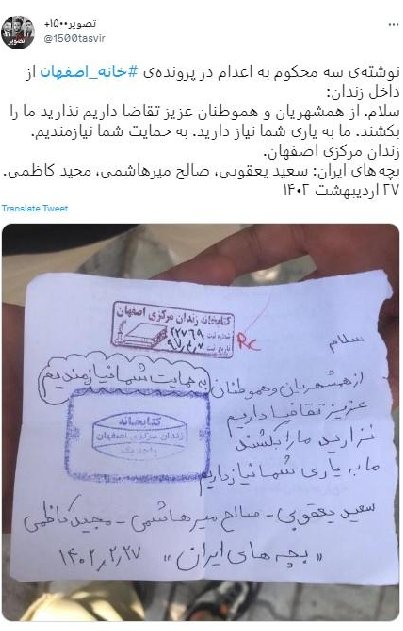 تصویر۱۵۰۰+
@1500tasvir
نوشته‌ی سه محکوم به اعدام در پرونده‌ی #خانه_اصفهان از
داخل زندان:
سلام. از همشهریان و هموطنان عزیز تقاضا داریم نذارید ما را
بکشند. ما به یاری شما نیاز دارید. به حمایت شما نیازمندیم.
زندان مرکزی اصفهان.
بچه‌های ایران: سعید یعقوبی، صالح میرهاشمی، مجید کاظمی.
۲۷ اردیبهشت ۱۴۰۲
Translate Tweet
کتابخانه زندان مرکزی اصفهان
شماره ثبت ۱۲۷۶۹
تاریخ ثبت
Rc
سلام
از همشهریان و هموطنان
به حمایت شما نیازمندیم
عزیز تقاضا داریم
نزارید ما را بکشند
ما به یاری شما نیاز داریم
کتابخانه
زندان مرکزی اصفهان
واحد یک
سعید یعقوبی - صالح میرهاشمی - مجید کاظمی
«بچه های ایران» ۱۴۰۲/۲/۲۷